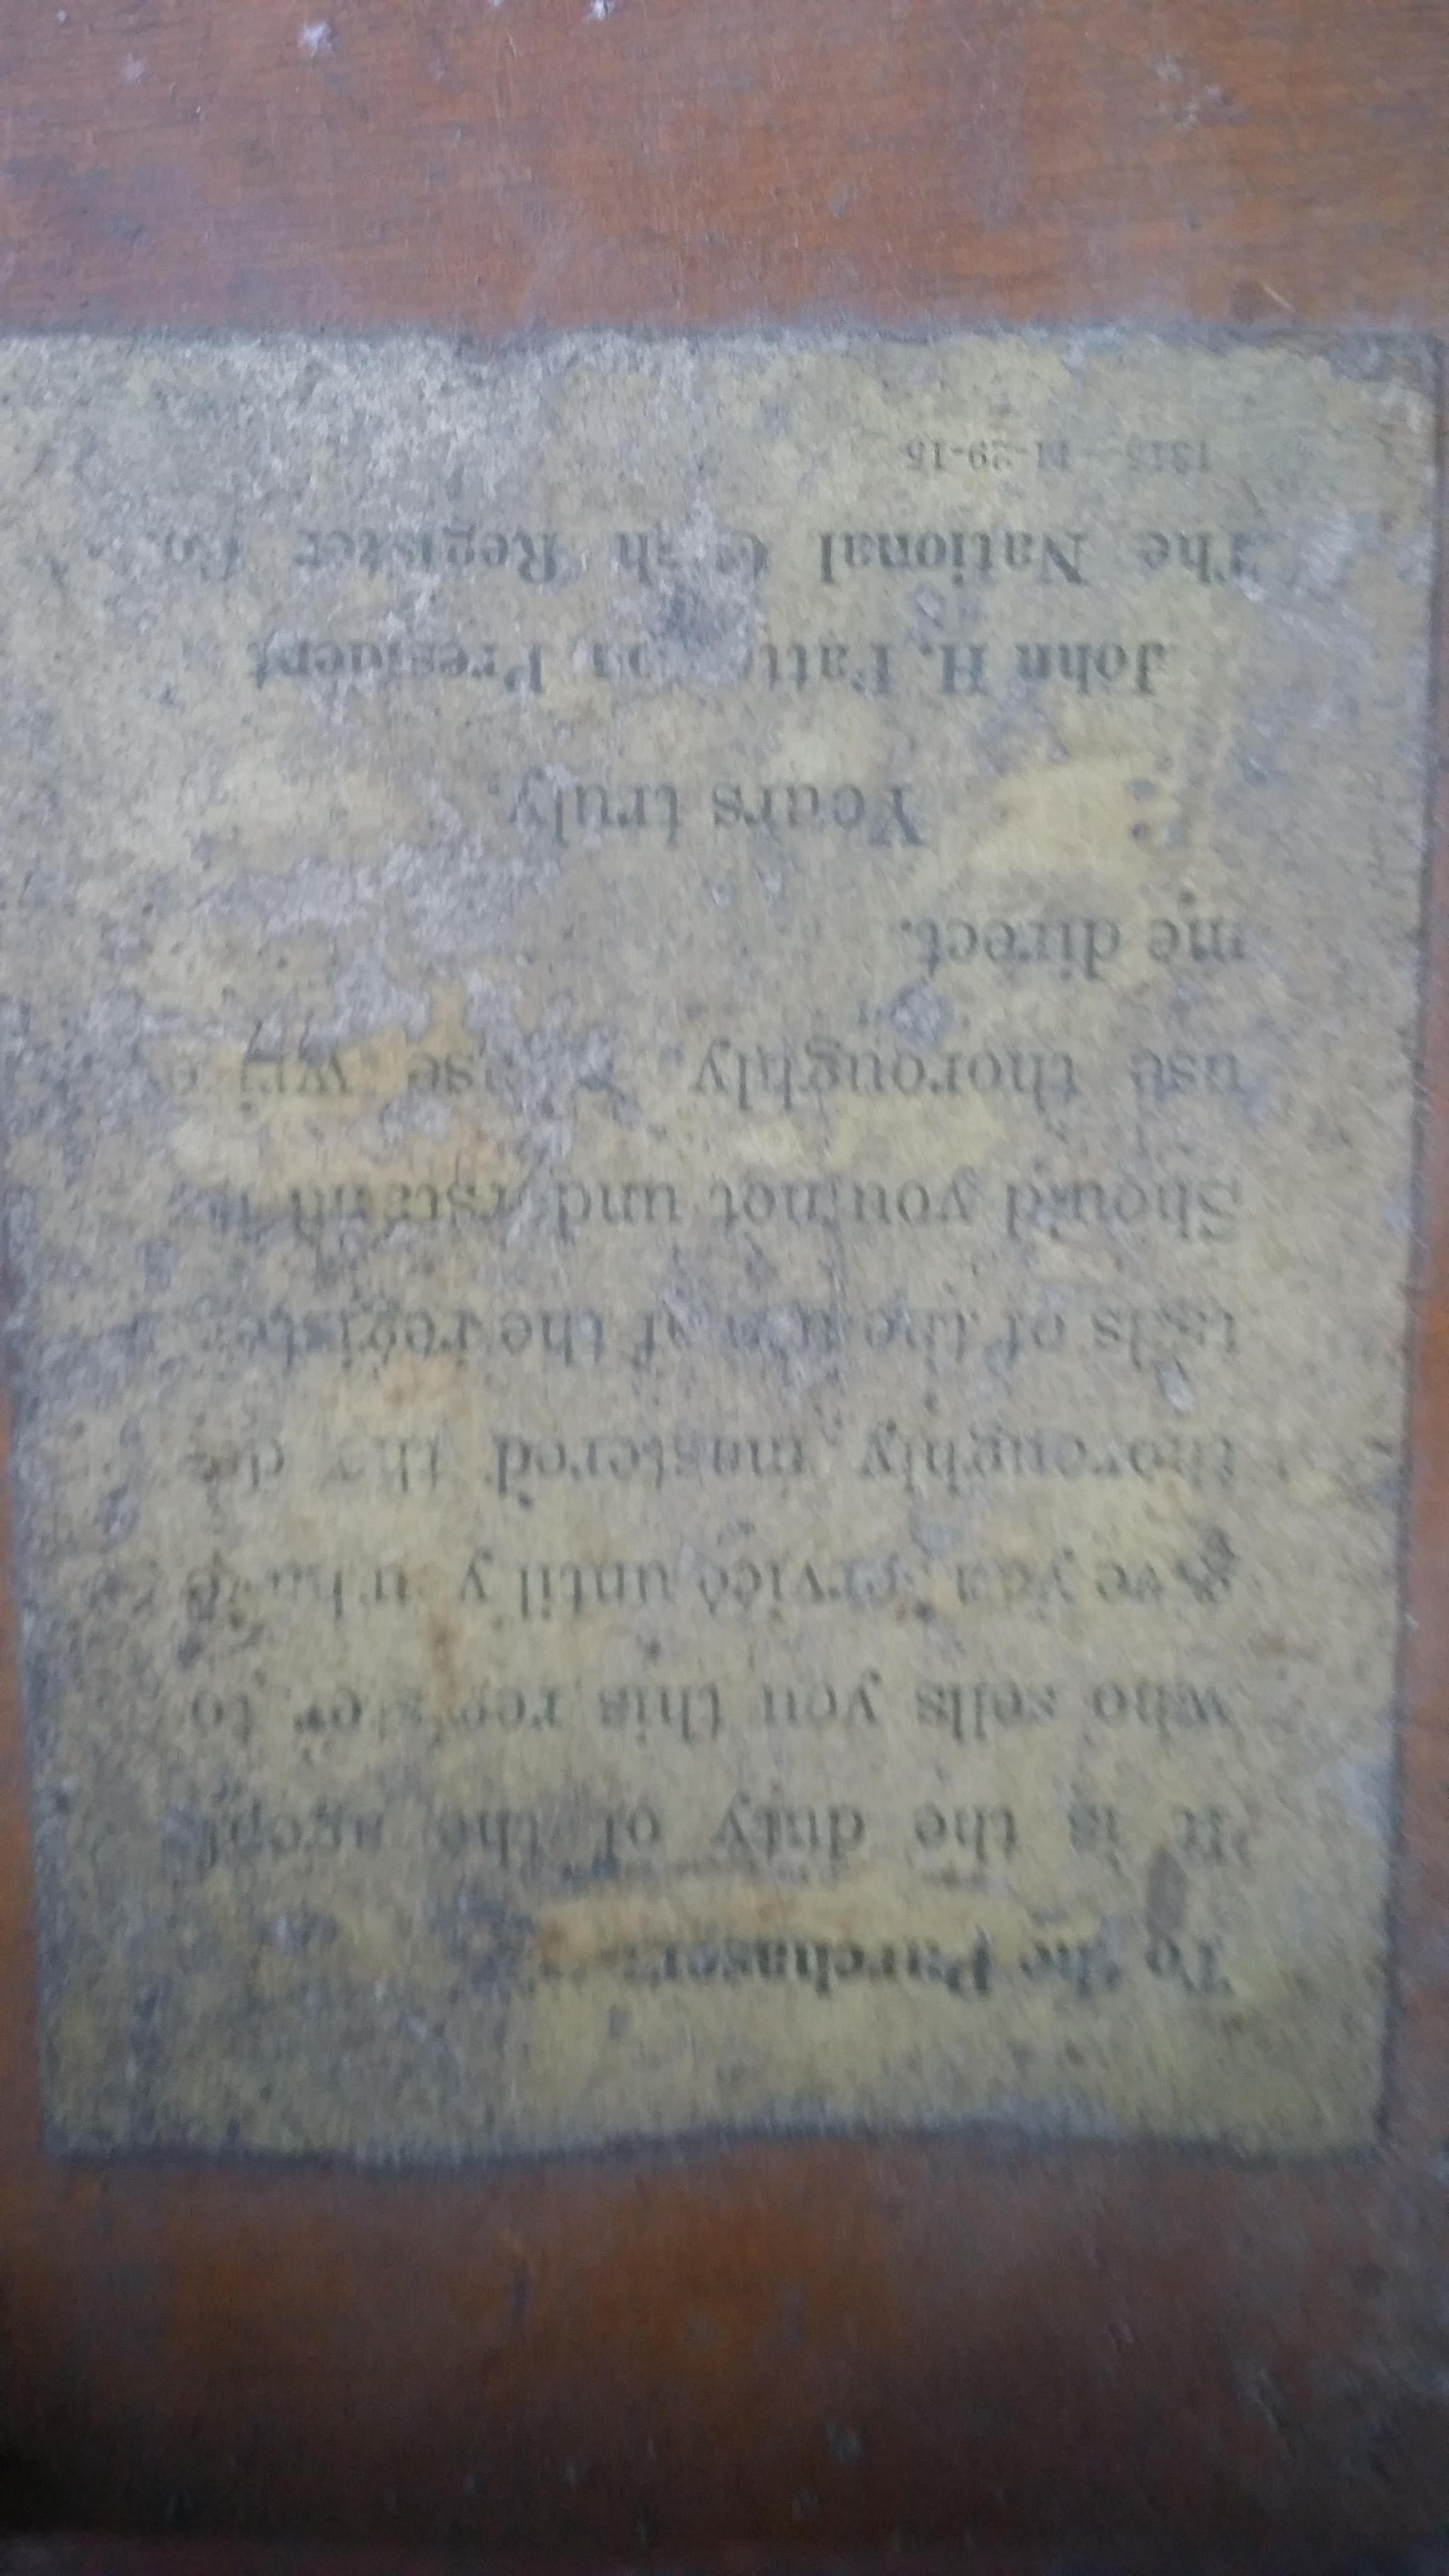 To the Purchaser:
It is the duty of the agent
who sells you this register to
give you service until you have
thoroughly mastered the de-
tails of the use of the register.
Should you not understand its
use thoroughly, please write
me direct.
Yours truly,
John H. Patterson, President
The National Cash Register Co.
11-29-15